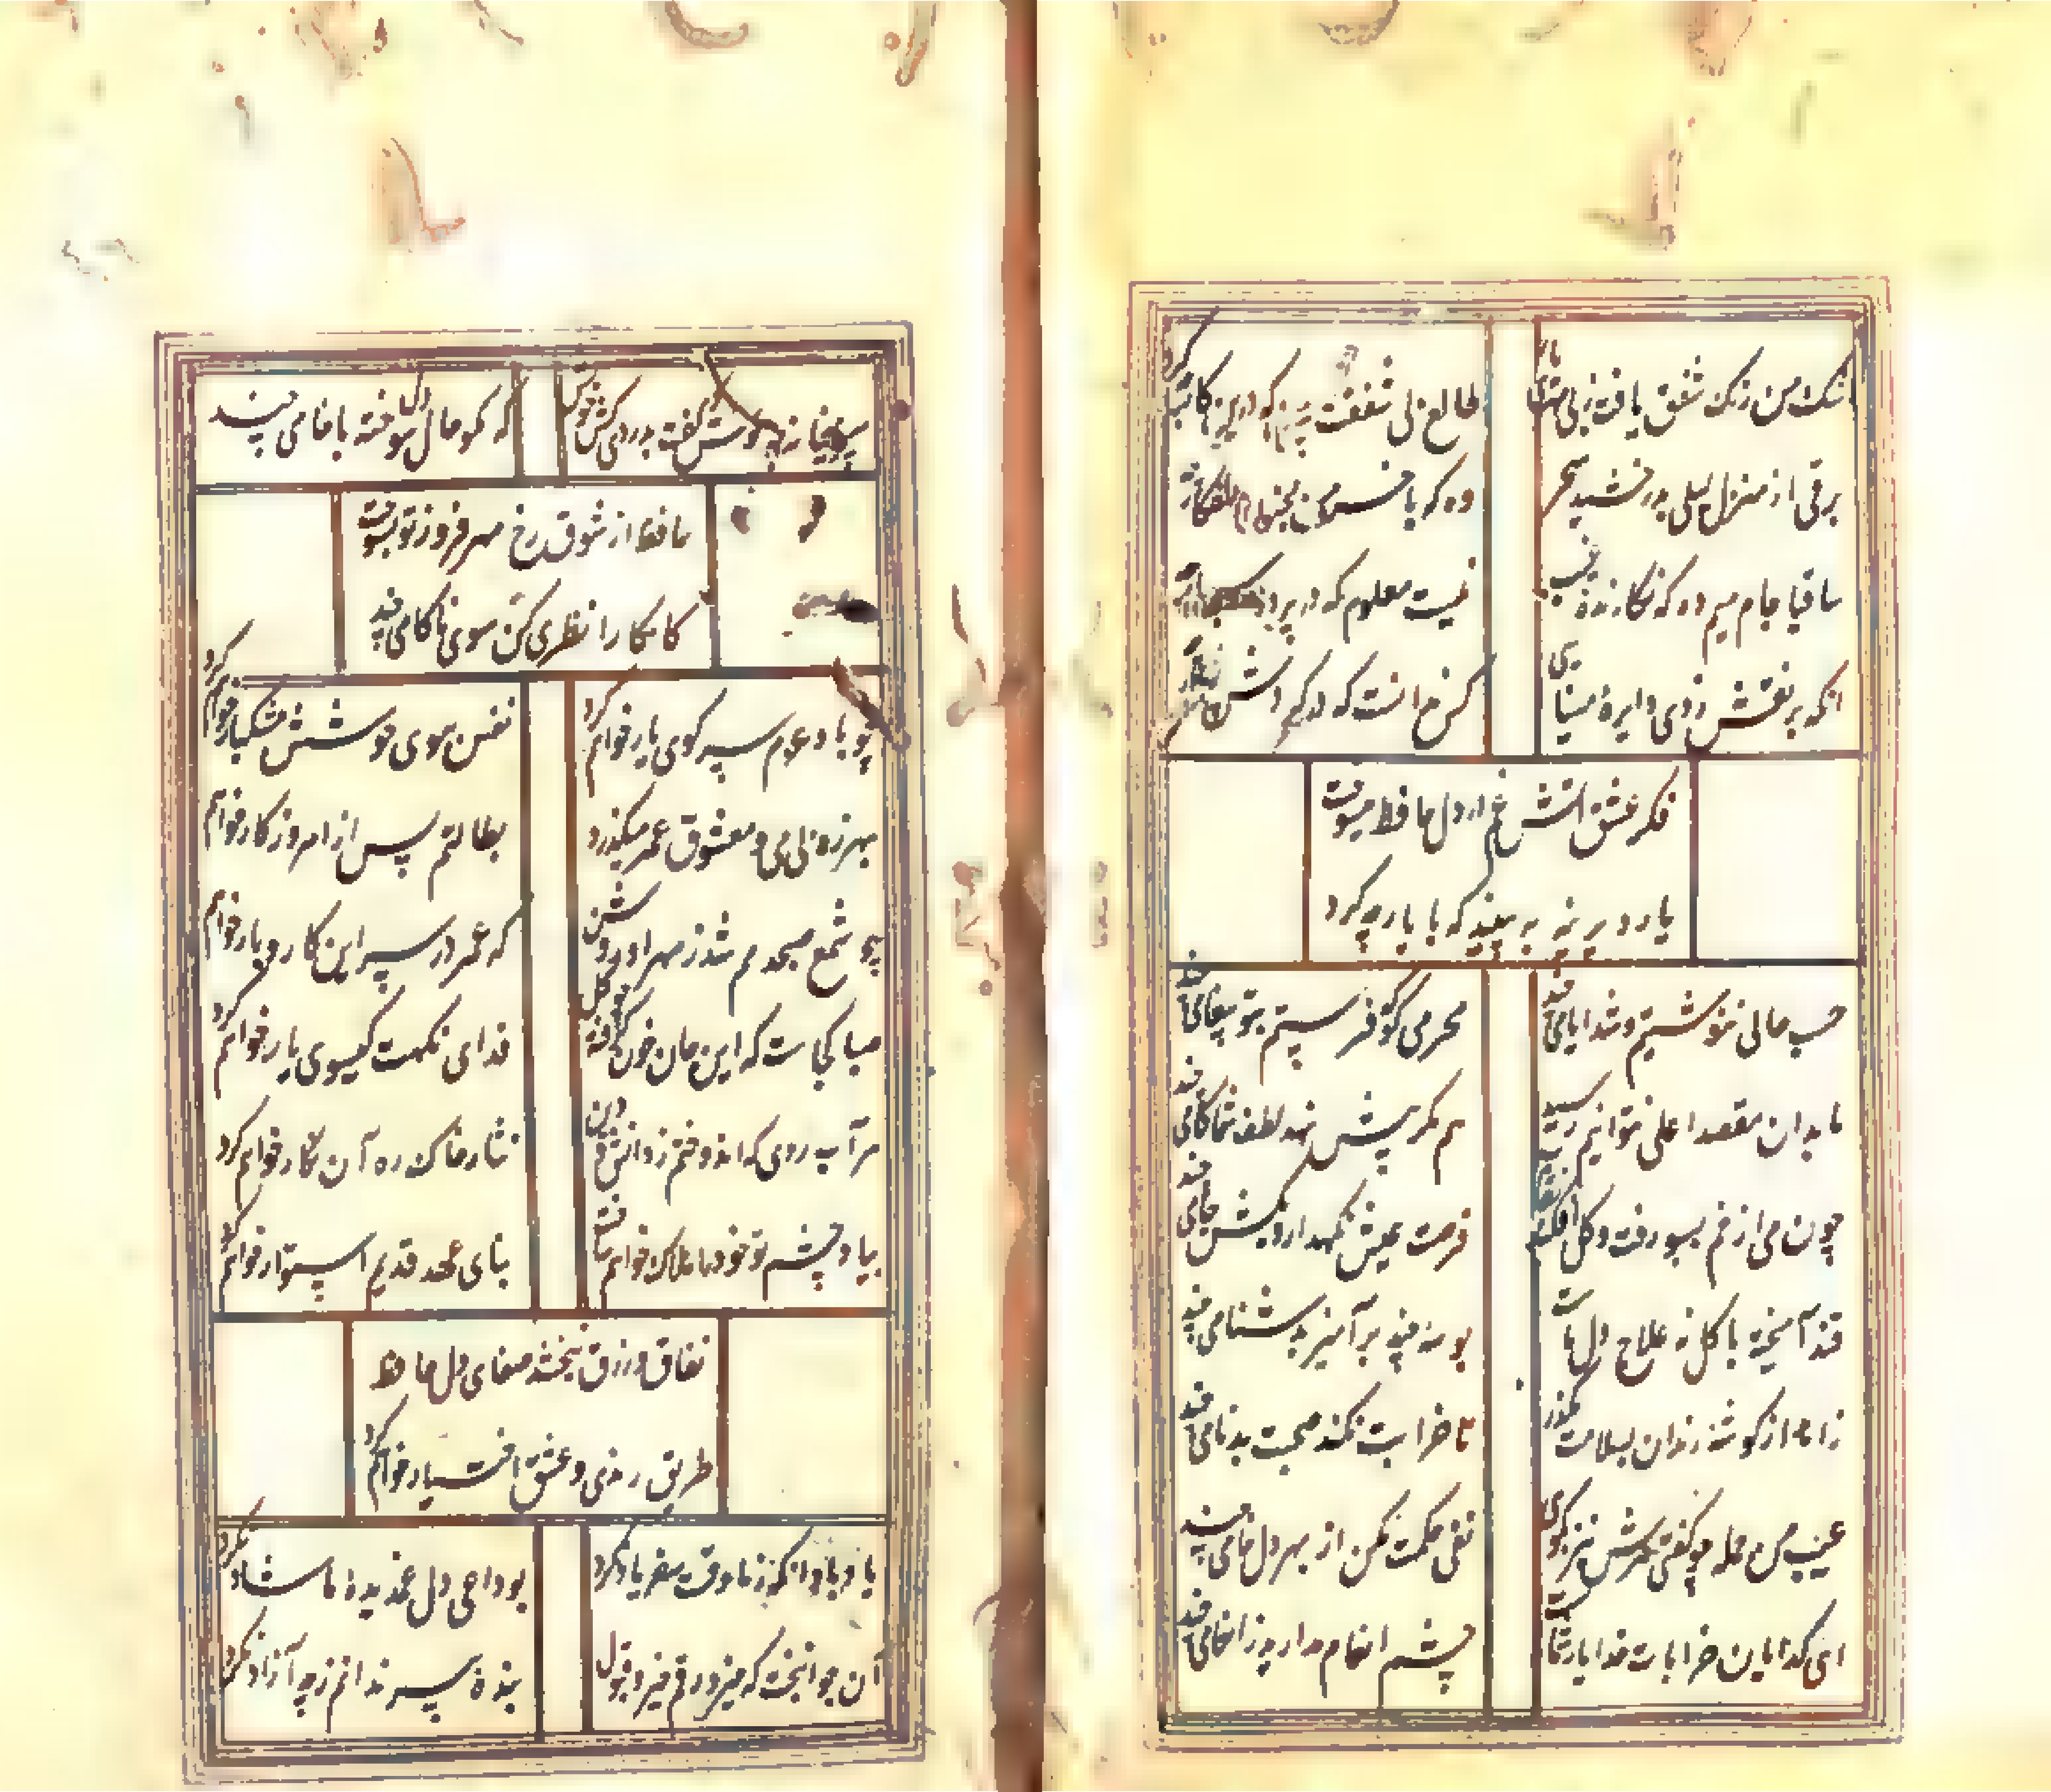 اشک من رنگ شفق یافت ز بی مهری یار
طالع بی شفقت بین که درین کار چه کرد
برقی از منزل لیلی بدرخشید سحر
وه که با خرمن مجنون دل افکار چه کرد
ساقیا جام میم ده که نگارنده غیب
نیست معلوم که در پرده اسرار چه کرد
انکه بر نقش زد این دایره مینایی
کس ندانست که در گردش پرگار چه کرد
فکر عشق آتش غم در دل حافظ زد و سوخت
یار دیرینه ببینید که با یار چه کرد
حسب حالی ننوشتیم و شد ایامی چند
محرمی کو که فرستم بتو پیغامی چند
ما بدان مقصد اعلی نتوانیم رسید
هم مگر پیش نهد لطف شما گامی چند
چون می از خم بسبو رفت و گل افکند نقاب
فرصت عیش نگهدار و بکش جامی چند
قند آمیخته با گل نه علاج دل ماست
بوسه چند برآمیز بدشنامی چند
زاهد از کوشه رندان بسلامت بگذر
تا خرابت نکند صحبت بدنامی چند
عیب می جمله چو گفتی هنرش نیز بگوی
نفی حکمت مکن از بهر دل عامی چند
ای گدایان خرابات خدا یار شماست
چشم انعام مدارید ز انعامی چند
پیر میخانه چه خوش گفت بدردی کش خویش
که مگو حال دل سوخته با خامی چند
حافظ از شوق رخ مهر فروز تو بسوخت
کامکارا نظری کن سوی ناکامی چند
چو باد عزم سر کوی یار خواهم کرد
نفس ببوی خوشش مشکبار خواهم کرد
بهرزه بی می و معشوق عمر میگذرد
بطالتم بس از امروز کار خواهم
چو شمع صبحدمم شد ز مهر او روشن
که عمر در سر این کار و بار خواهم
صبا کجاست که این جان خون گرفته چو گل
فدای نکهت گیسوی یار خواهم کرد
هر آب روی که اندوختم ز دانش و دین
نثار خاک ره آن نگار خواهم کرد
بیاد چشم تو خود را خراب خواهم ساخت
بنای عهد قدیم استوار خواهم کرد
نفاق و زرق نبخشد صفای دل حافظ
طریق رندی و عشق اختیار خواهم کرد
یاد باد آنکه ز ما وقت سفر یاد نکرد
بوداعی دل غمدیده ما شاد نکرد
آن جوانبخت که میزد رقم خیر و قبول
بنده پیر ندانم ز چه آزاد نکرد